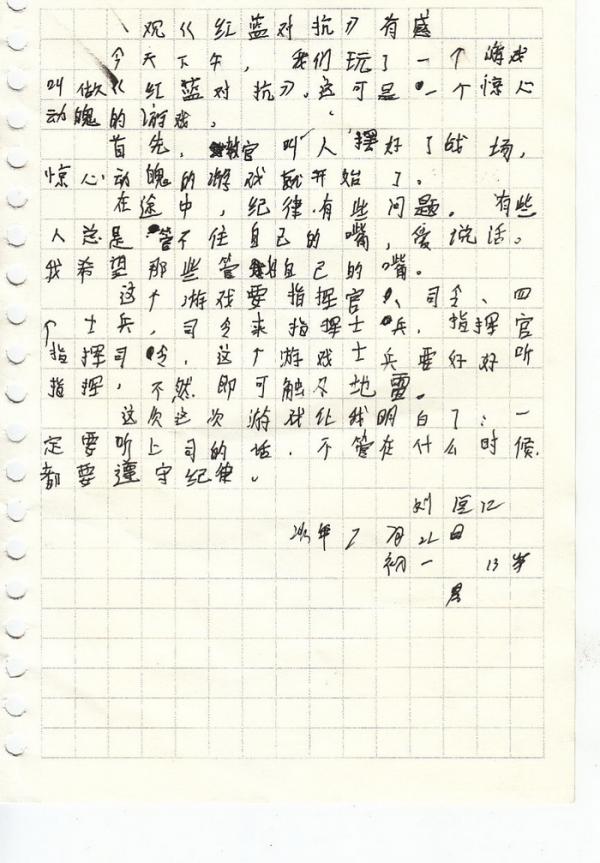 观《红蓝对抗》有感
今天下午，我们玩了一个游戏
叫做《红蓝对抗》。这可是一个惊心
动魄的游戏。
首先，教官叫人摆好了战场，
惊心动魄的游戏就开始了。
在途中，纪律有些问题。有些
人总是管不住自己的嘴，爱说话。
我希望那些管住自己的嘴。
这个游戏要指挥官、司令、四
个士兵，司令来指挥士兵，指挥官
指挥司令，这个游戏士兵要好好听
指挥，不然即可触及地雷。
这次这次游戏让我明白了：一
定要听上司的话，不管在什么时候，
都要遵守纪律。
刘
年7月21日
初一 13岁
男